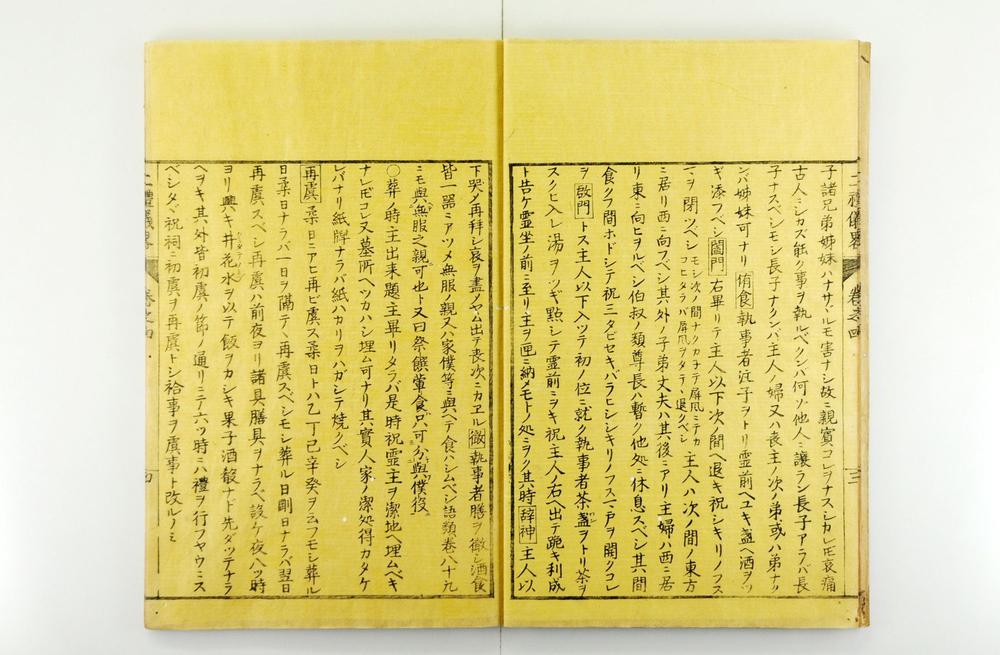 子諸兄弟姊妹ハナサヾルモ害ナシ故ニ親賓コレヲナスシカレ𪜈哀痛
古人ニシカズ能ク事ヲ執ルベクンバ何ゾ他人ニ讓ラン長子アラバ長
子ナスベシモシ長子ナクンバ主人ノ婦又ハ喪主ノ次ノ弟或ハ弟ナク
ンバ姊妹可ナリ 侑食 執事者瓶子ヲトリ霊前ヘユキ盞ヘ酒ヲツ
ギ添フベシ 闔門 右畢リテ主人以下次ノ間ヘ退キ祝シキリノフス
マヲ閉ヅベシ モシ次ノ間ナクカ子テ屏風ニテカコヒタラバ屏風ヲタテヽ退クベシ 主人ハ次ノ間ノ東方
ニ居リ西ニ向フベシ其外ノ子弟丈夫ハ其後ニアリ主婦ハ西ニ居
リ東ニ向ヒヲルベシ伯叔ノ類尊長ハ暫ク他処ニ休息スベシ其間
食クフ間ホドシテ祝三タビセキバラヒシシキリノフスマ戸ヲ開クコレ
ヲ 啟門 トス主人以下入ツテ初ノ位ニ就ク執事者茶盞ヲトリ茶ヲ
スクヒ入レ湯ヲツギ點シテ霊前ニヲキ祝主人ノ右ヘ出テ跪キ利成
ト告ゲ霊坐ノ前ニ至リ主ヲ匣ニ納メモトノ処ニヲク其時 辞神 主人以
二禮儀畧 卷之四 三
下哭シ再拜シ哀ヲ盡シヤム出デ喪次ニカヱル 徹 執事者膳ヲ徹シ酒食
皆一器ニアツメ無服ノ親又ハ家僕等ニ與ヘテ食ハシムベシ語類卷八十九
ニモ與無服之親可也ト又曰祭饌葷食只可分與僕役
〇葬ノ時ニ主出来題主畢リタラバ是時祝霊主ヲ潔地ヘ埋ムベキ
ナレ𪜈コレ又墓所ヘツカハシ埋ム可ナリ其實人家ノ潔処得カタケ
レバナリ紙牌ナラバ紙ハカリヲハガシテ焼クベシ
再虞 柔日ニアヒ再ビ虞ス柔日トハ乙丁己辛癸ヲ云フモシ葬ル
日柔日ナラバ一日ヲ隔テヽ再虞スベシモシ葬ル日剛日ナラバ翌日
再虞スベシ再虞ハ前夜ヨリ諸具膳具ヲナラベ設ケ夜八ツ時
ヨリ興キ井花水ヲ以テ飯ヲカシキ果子酒殽ナド先ダツテナラ
ヘヲキ其外皆初虞ノ節ノ通リニテ六ツ時ニハ禮ヲ行フヤウニス
ベシタヾ祝詞ニ初虞ヲ再虞トシ祫事ヲ虞事ト改ルノミ
二禮儀畧 卷之四 四